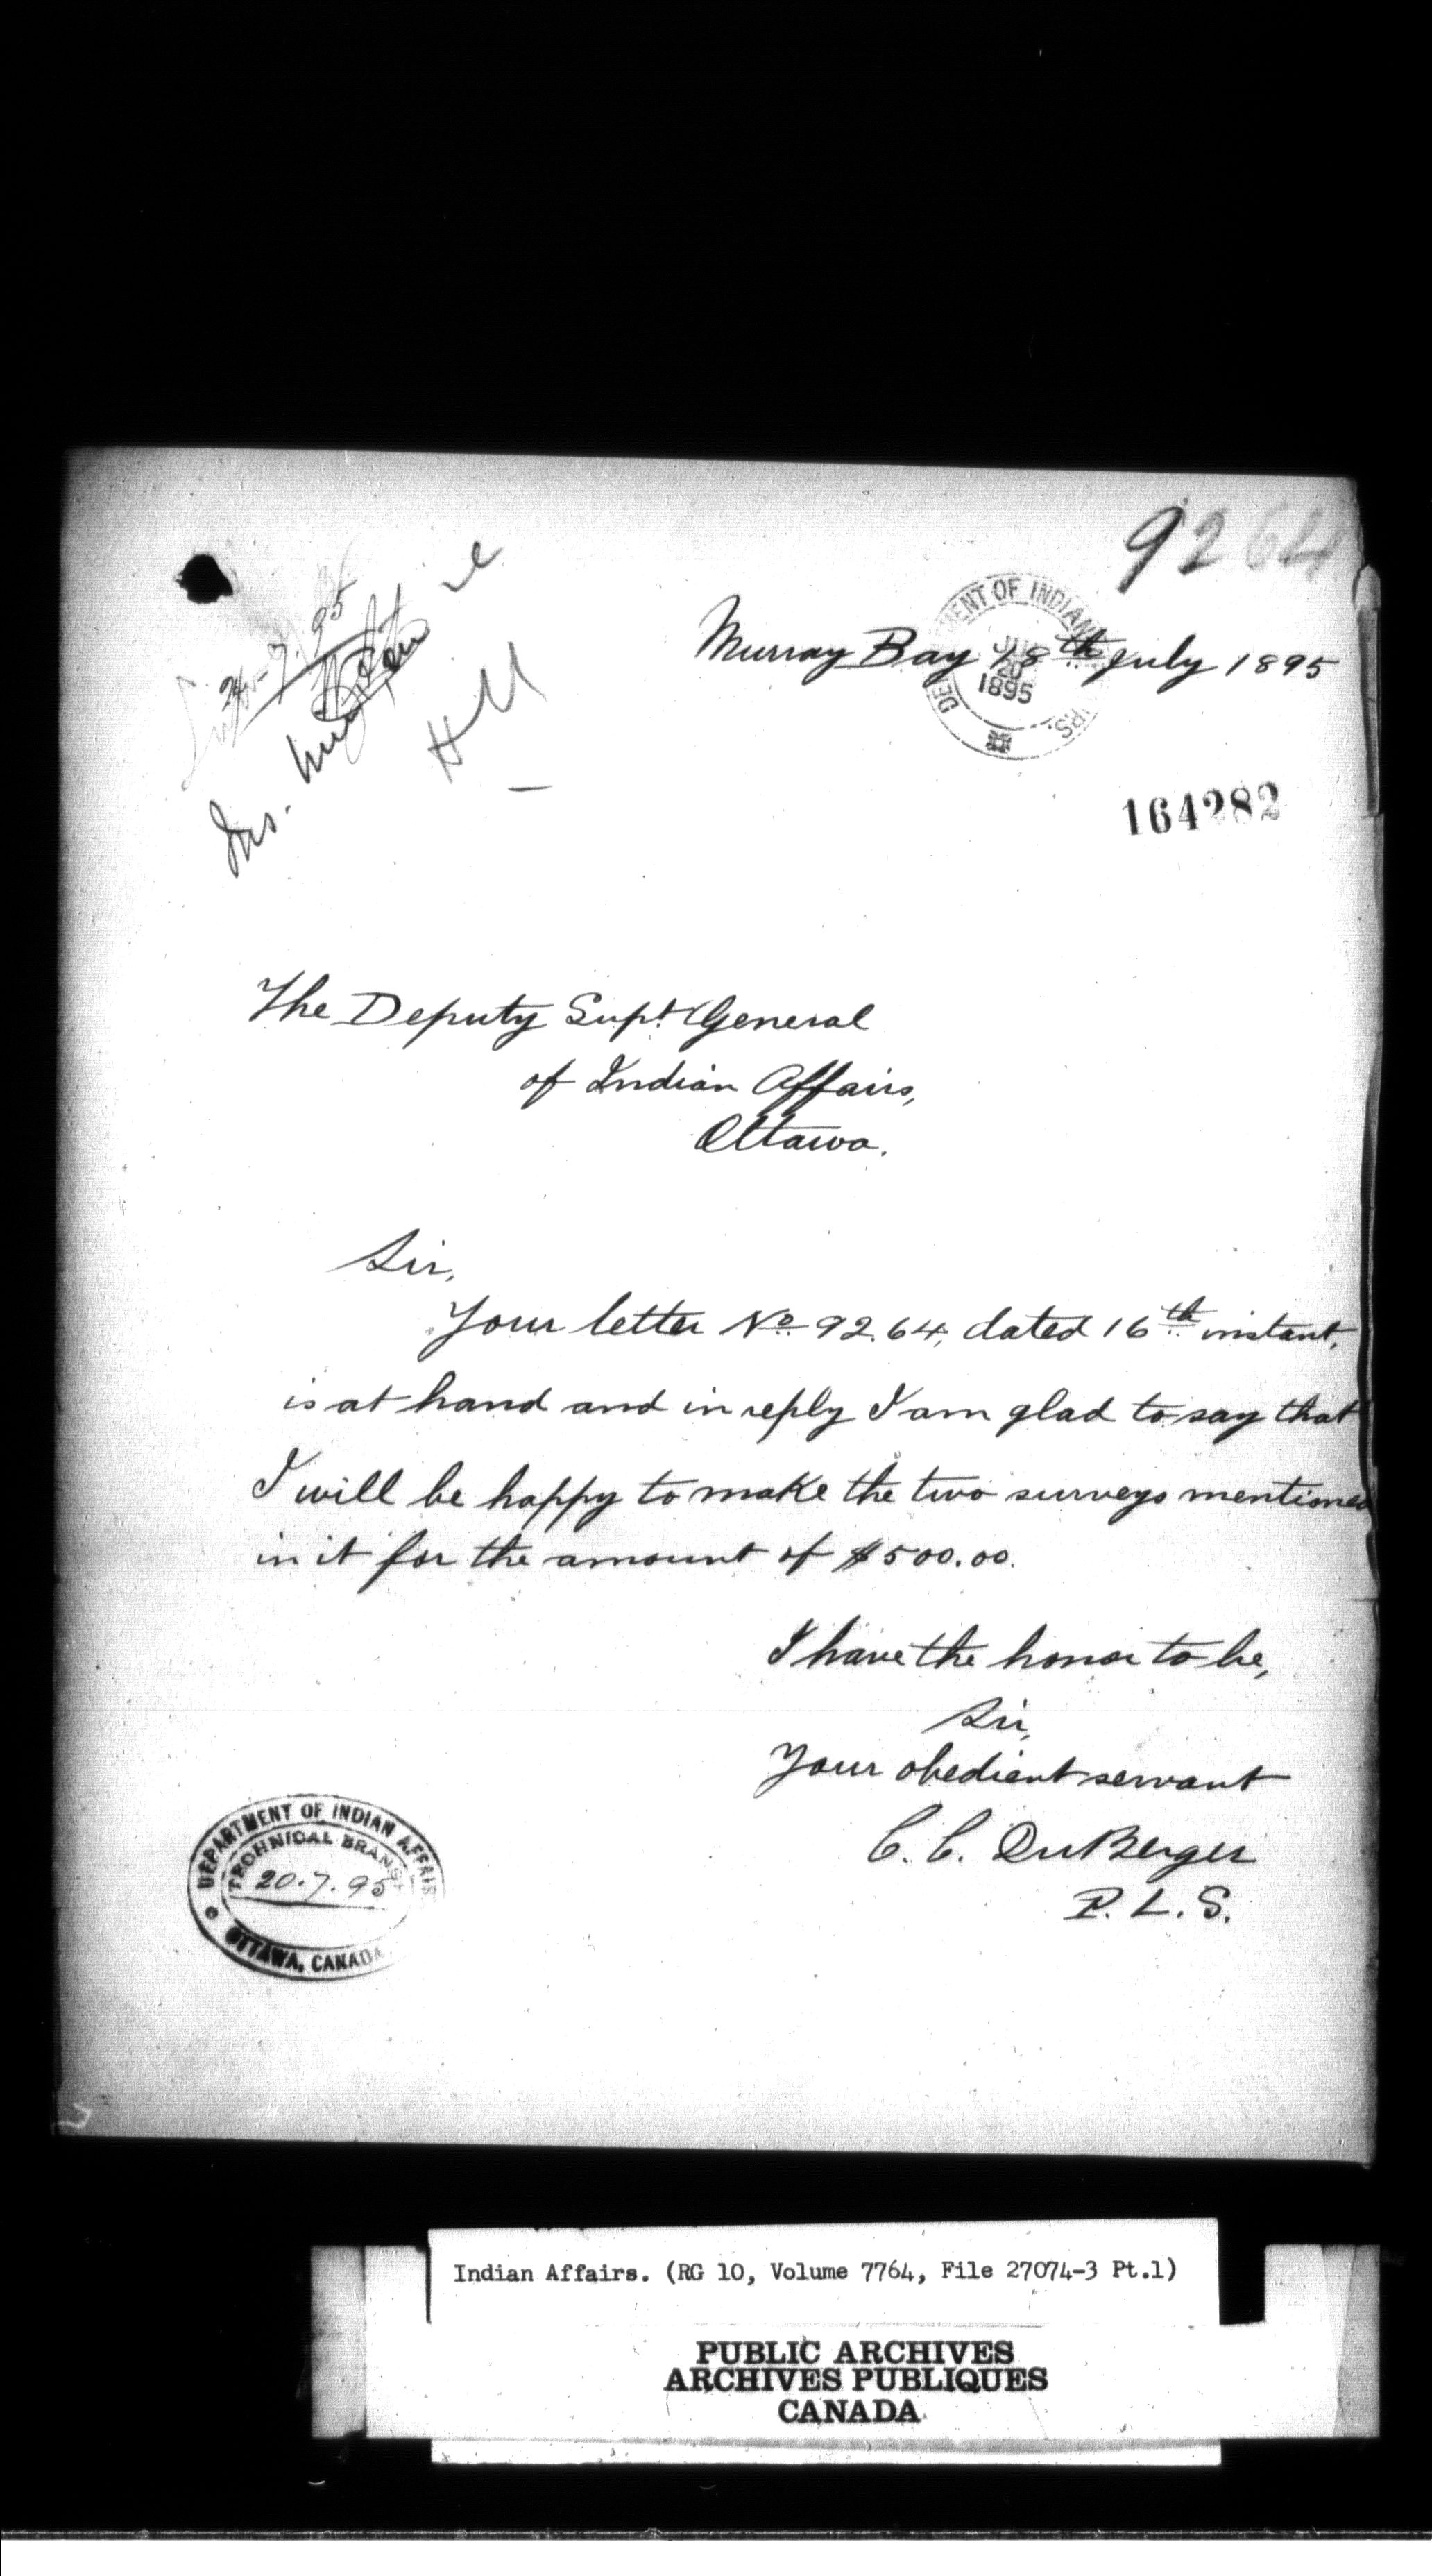 9264
24-7.95
Murray Bay 18th July 1895
DEPARTMENT OF INDIAN AFFAIRS.
JUL
20
1895
164282
The Deputy Supt General
of Indian Affairs,
Ottawa.
Sir,
Your letter No 9264, dated 16th instant,
is at hand and in reply I am glad to say that
I will be happy to make the two surveys mentioned
in it for the amount of $500.00.
I have the honor to be,
Sir,
Your obedient servant
C. C. DuBerger
P. L. S.
DEPARTMENT OF INDIAN AFFAIRS
TECHNICAL BRANCH
20.7.95
OTTAWA, CANADA
Indian Affairs. (RG 10, Volume 7764, File 27074-3 Pt.1)
PUBLIC ARCHIVES
ARCHIVES PUBLIQUES
CANADA